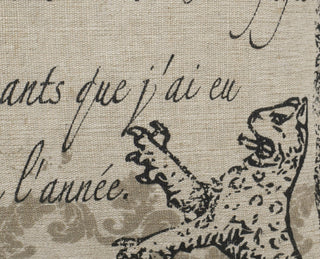 ants que j'ai eu
l'année.